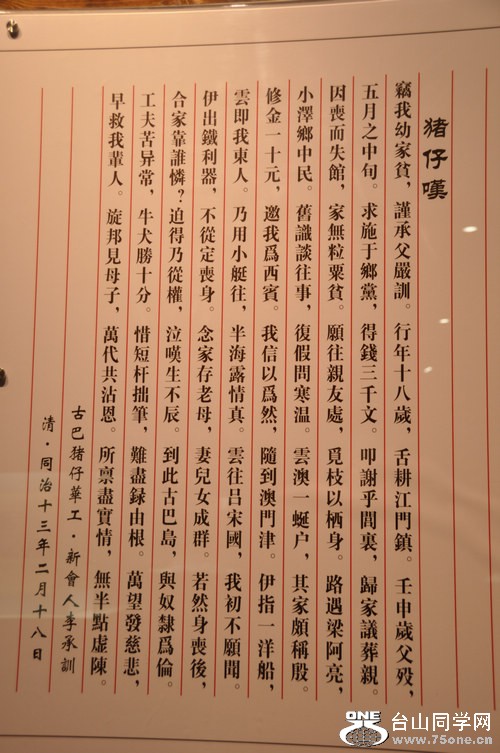 猪仔嘆
竊我幼家貧，謹承父嚴訓。行年十八歲，舌耕江門鎮。壬申歲父殁，
五月之中旬。求施于鄉黨，得錢三千文。叩謝乎閭裏，歸家議葬親。
因喪而失館，家無粒粟貧。願往親友處，覓枝以栖身。路遇梁阿亮，
小澤鄉中民。舊識談往事，復假問寒温。雲澳一蜒户，其家頗稱殷。
修金一十元，邀我爲西賓。我信以爲然，隨到澳門津。伊指一洋船，
雲即我東人。乃用小艇往，半海露情真。雲往吕宋國，我初不願聞。
伊出鐵利器，不從定喪身。念家存老母，妻兒女成群。若然身喪後，
合家靠誰憐？迫得乃從權，泣嘆生不辰。到此古巴島，與奴隸爲倫。
工夫苦异常，牛犬勝十分。惜短杆拙筆，難盡録由根。萬望發慈悲，
早救我輩人。旋邦見母子，萬代共沾恩。所禀盡實情，無半點虛陳。
古巴猪仔華工·新會人李承訓
清·同治十三年二月十八日
ONE
台山同学网
www.75one.cn